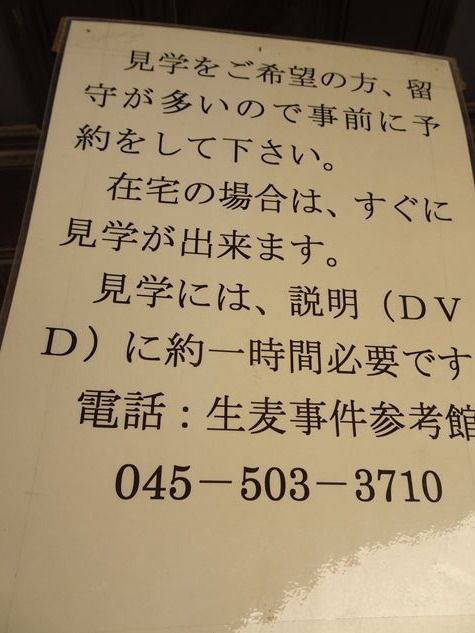 見学をご希望の方、留
守が多いので事前に予
約をして下さい。
在宅の場合は、すぐに
見学が出来ます。
見学には、説明（ＤＶ
Ｄ）に約一時間必要です
電話：生麦事件参考館
045－503－3710